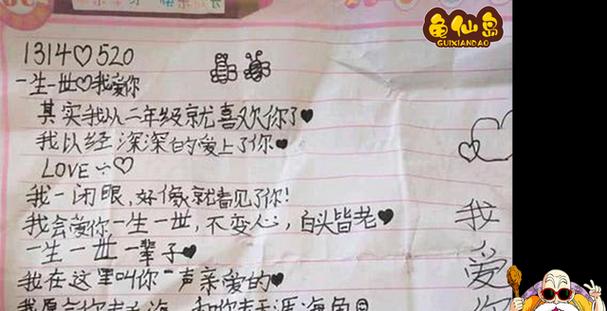 龟仙岛
GUIXIANDAO
1314♡520
一生一世♡我爱你
其实我从二年级就喜欢你了♥
我以经深深的爱上了你♥
LOVE÷♡
我一闭眼,好像就看见了你!
我会爱你一生一世,不变心,白头皆老♥
一生一世一辈子♥
我在这里叫你一声亲爱的♥
我愿
和你走天涯海角
我爱你